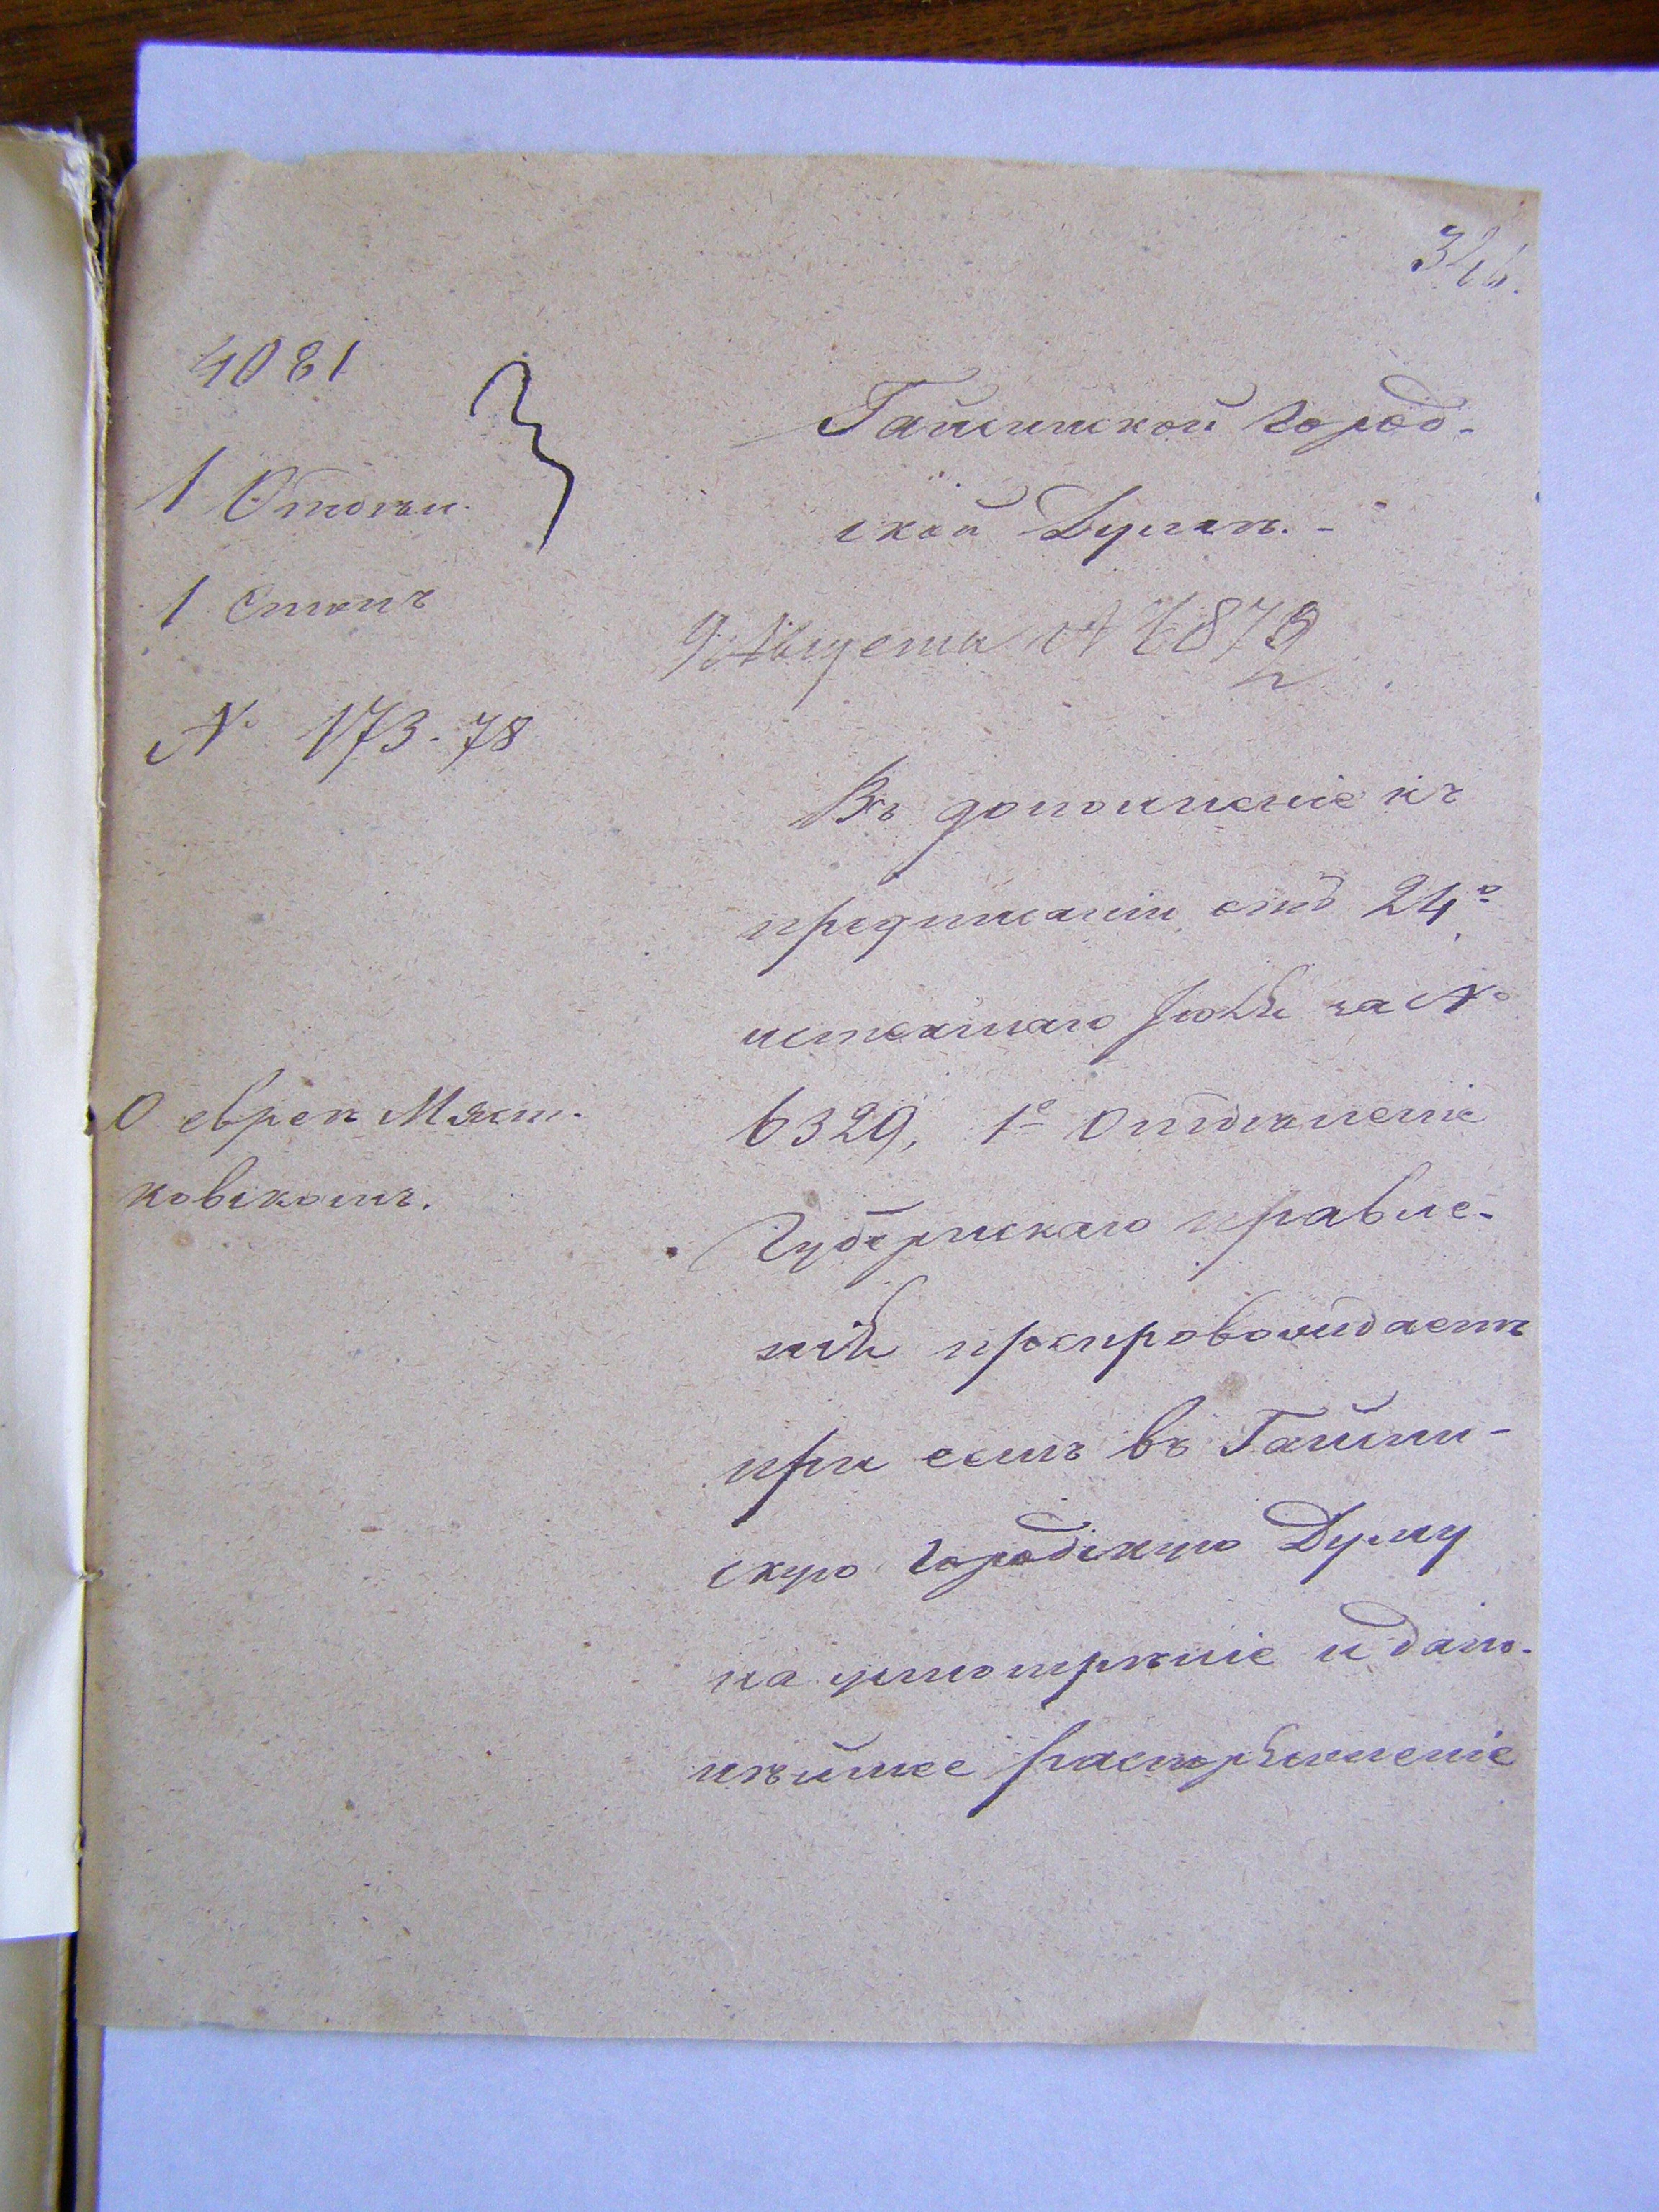 4081
1 Отдѣл.
1 Столъ
№ 173-78
О евреѣ Мяст-
ковскомъ.
Гайсинской город-
ской Думѣ. -
9 Августа № 6879
Въ дополненіе къ
предписанію отъ 24го
истекшаго Іюля за №
6329, 1е Отдѣленіе
Губернскаго правле-
нія препровождаетъ
при семъ въ Гайсин-
скую Городскую Думу
на усмотрѣніе и даль-
нѣйшее распоряженіе